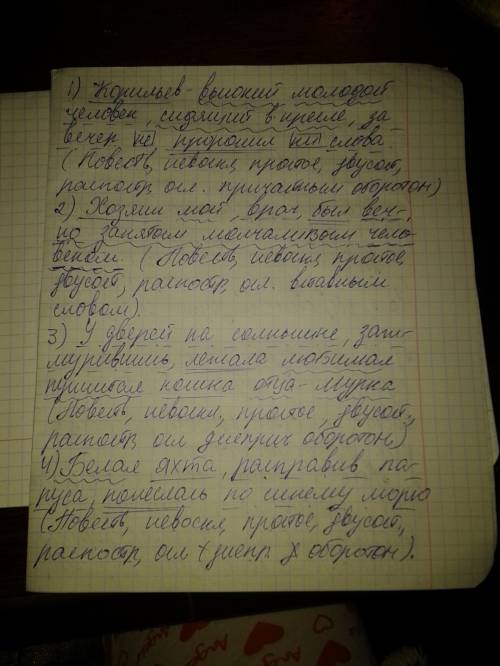 1) Корнильев - высокий молодой
человек, сидящий в кресле, за
вечер не проронил ни слова
(Повеств, невоскл, простое, двусост,
распостр, осл. причастным оборотом)
2) Хозяин мой, врач, был веч-
но занятым молчаливым чело-
веком. (Повеств, невоскл, простое,
двусост, распостр, осл. вставным
словом).
3) У дверей на солнышке, зажм-
мурившись, лежала любимая
пушистая кошка отца - Мурка
(Повеств, невоскл, простое, двусост.,
распостр, осл. дееприч оборотом)
4) Белая яхта, расправив па-
руса, понеслась по синему морю
(Повеств, невоскл, простое, двусост.,
распостр, осл. (деепр.) оборотом).